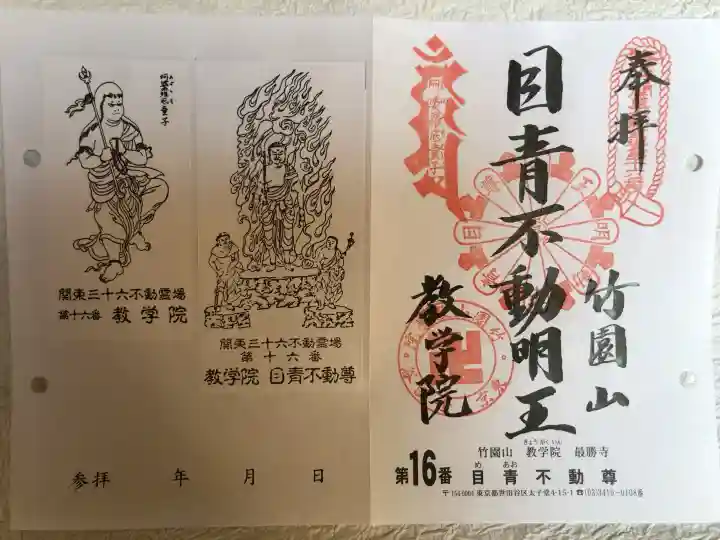 童子
関東三十六不動霊場
第十六番 教学院
関東三十六不動霊場
第十六番
教学院 目青不動尊
参拝 年 月 日
奉拝
目青不動明王
竹園山
教学院
きょうがくいん
竹園山 教学院 最勝寺
め あお
第16番 目青不動尊
東京都世田谷区太子堂4-15-1